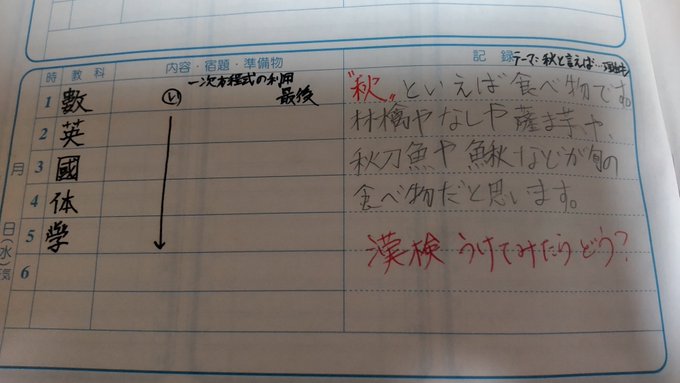 時 教科 内容・宿題・準備物 記録 テーマ:秋と言えば…
一次方程式の利用
最後
1 數
2 英
3 國
4 体
5 学
6
月
日(水)
気
〝秋〟といえば食べ物です。
林檎やなしや薩ま芋や、
秋刀魚や鰍などが旬の
食べ物だと思います。
漢検 うけてみたらどう?